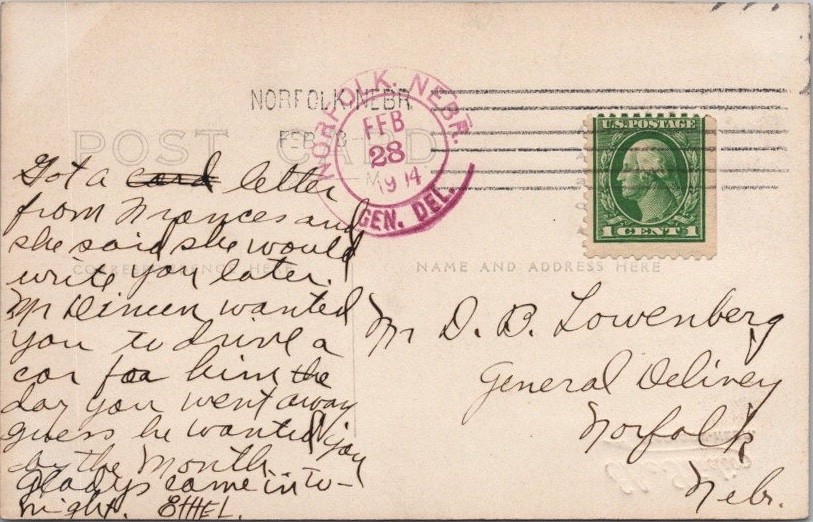 NORFOLK, NEBR
FEB 28
NORFOLK, NEBR.
FEB
28
1914
GEN. DEL.
U.S. POSTAGE
1 CENT 1
POST CARD
CORRESPONDENCE HERE
NAME AND ADDRESS HERE
Got a card letter
from Frances and
she said she would
write you later.
Mr Dineen wanted
you to drive a
car for him the
day you went away
guess he wanted you
by the Month.
Gladys came in to-
night. ETHEL.
Mr D. B. Lowenberg
General Delivey
Norfolk
Nebr.